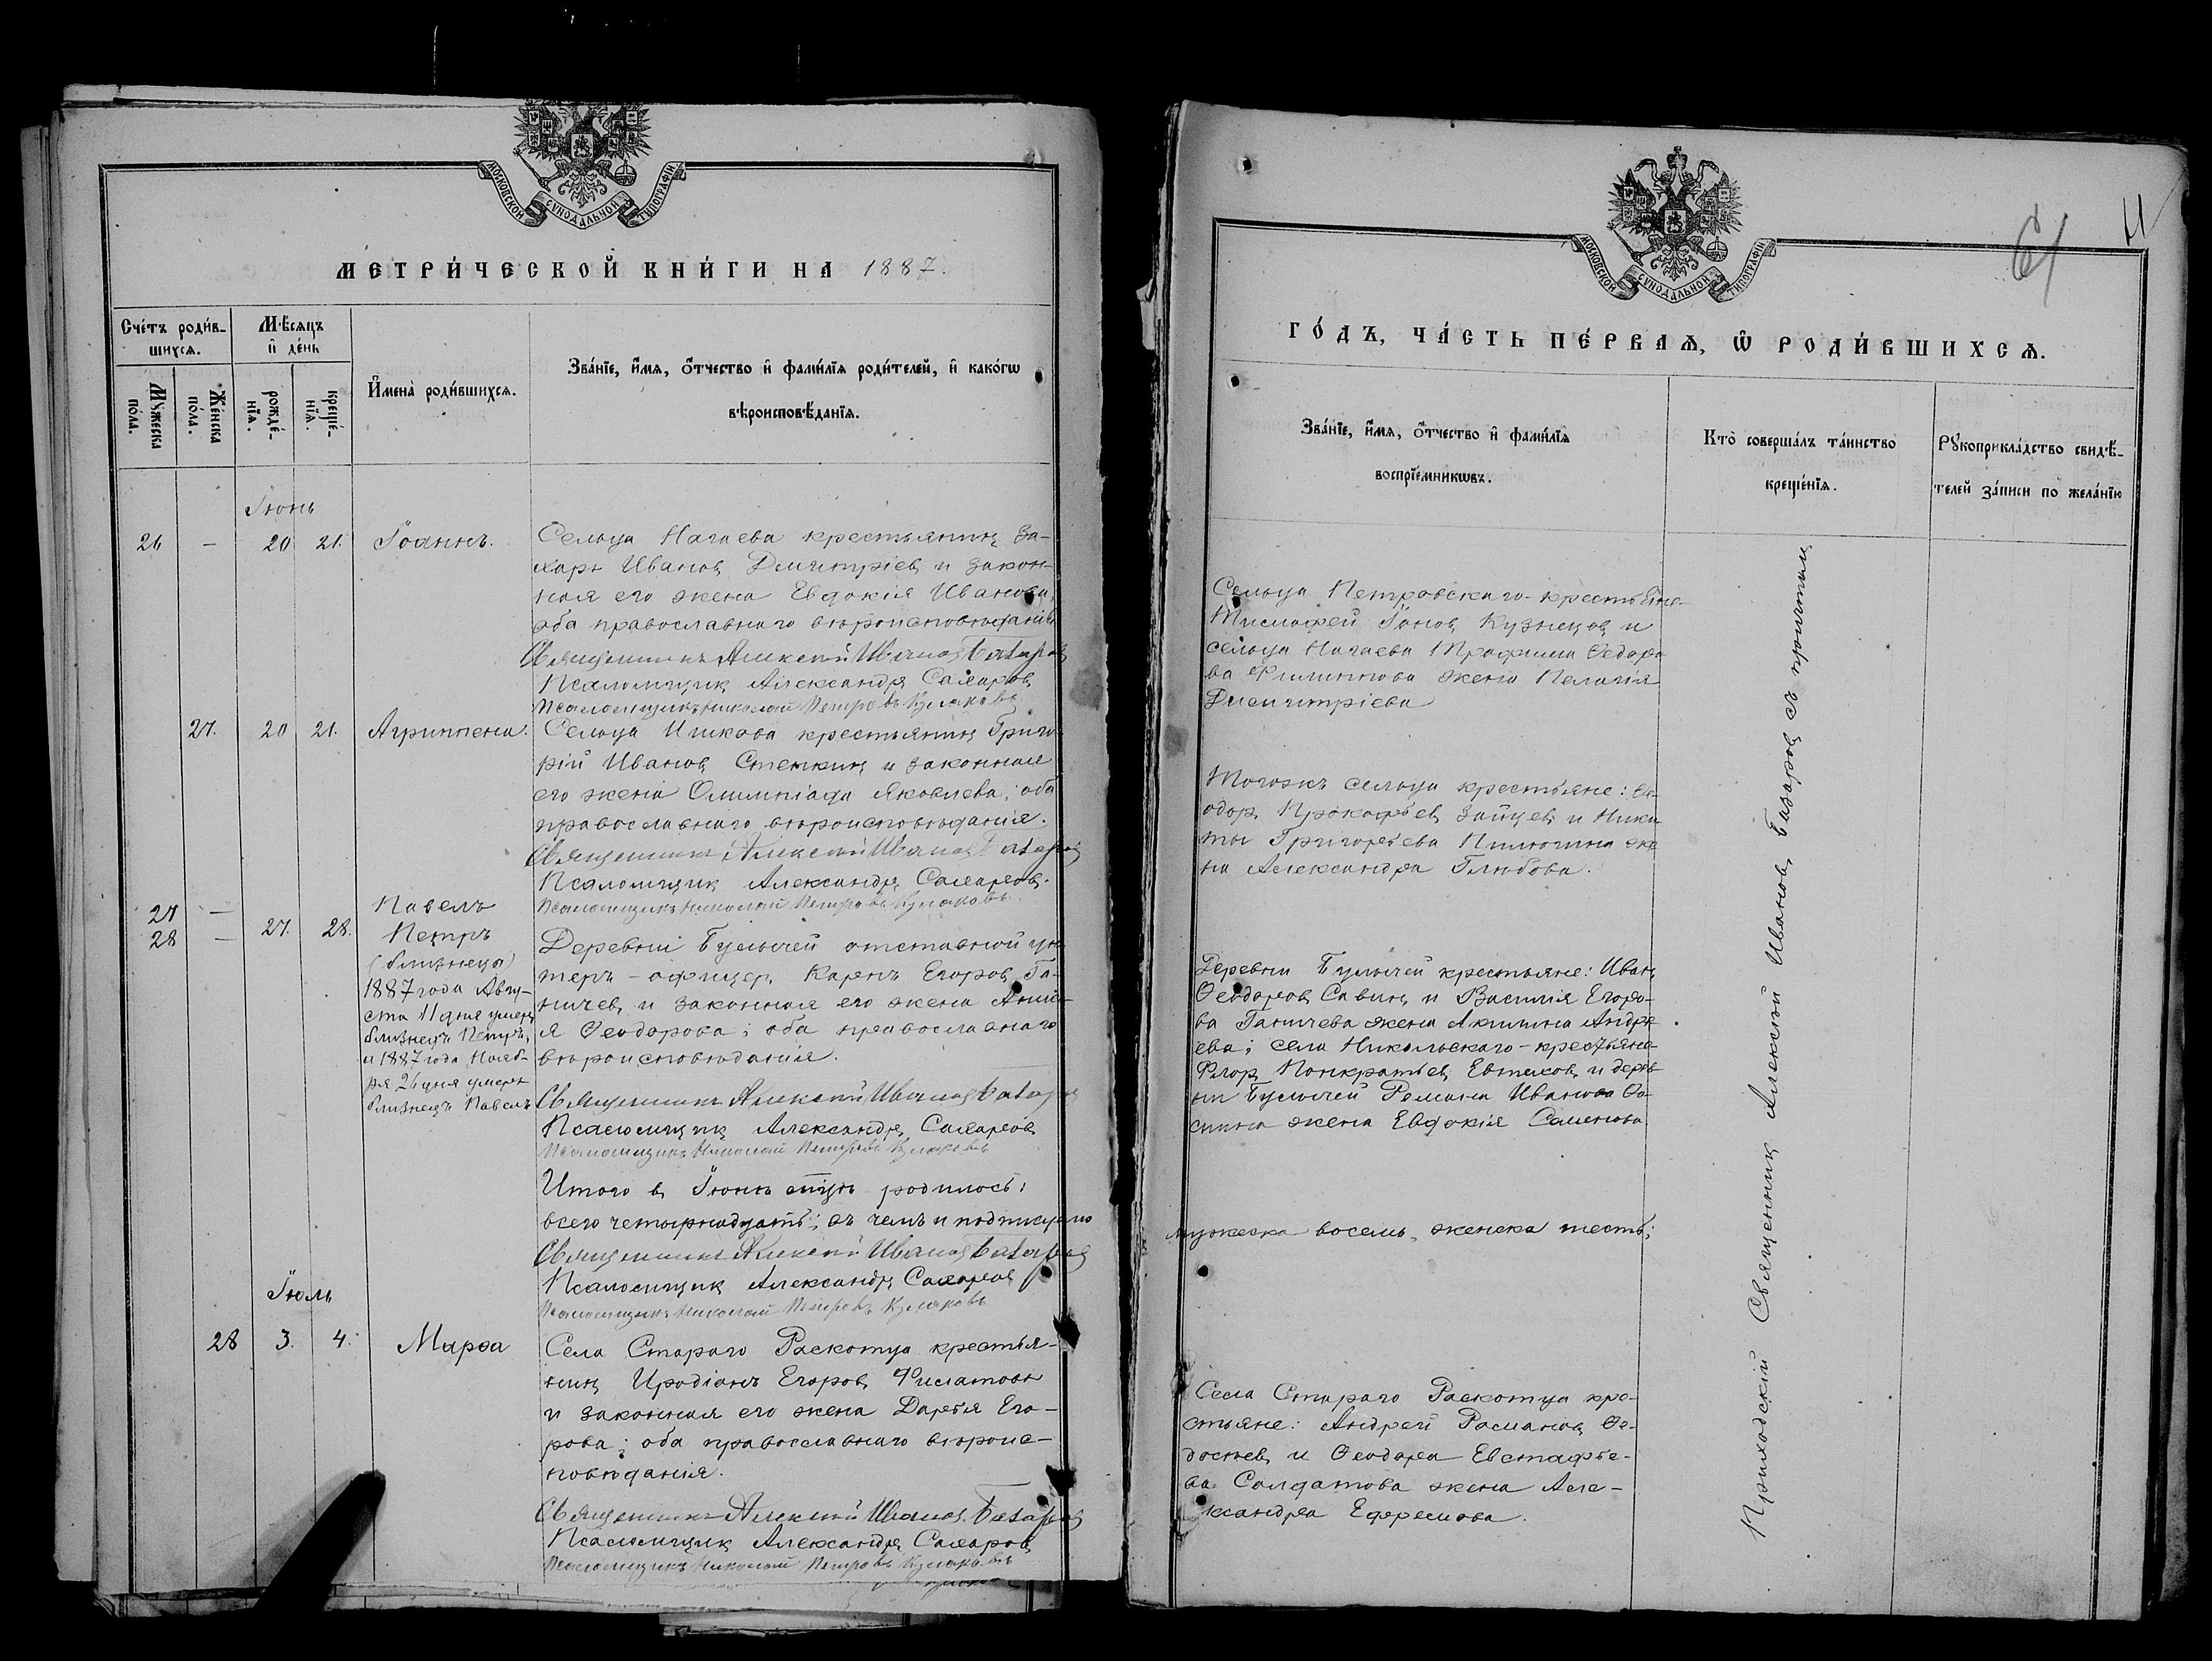 МОСКОВСКОЙ СѴНОДАЛЬНОЙ ТѴПОГРАФІИ
МЕТРИ́ЧЕСКОЙ КНИ́ГИ НА 1887.
Сче́тъ роди́в-
шихсѧ.
Мѣ́сѧцъ
и҆ де́нь
Мꙋ́жеска
по́ла.
Же́нска
по́ла.
рожде́-
нїѧ.
креще́-
нїѧ.
И҆мена̀ роди́вшихсѧ.
Зва́нїе, и҆́мѧ, ѻ҆́тчество и҆ фами́лїѧ роди́телей, и҆ како́гѡ
вѣроисповѣ́данїѧ.
Іюнь
26 — 20 21. Іоаннъ.
Сельца Нагаева крестьянинъ За-
харъ Ивановъ Дмитріевъ и закон-
ная его жена Евдокія Иванова,
оба православнаго вѣроисповѣданія
Священникъ Алексій Ивановъ Базаровъ
Псаломщикъ Александръ Сахаровъ
Псаломщикъ Николай Петровъ Кулаковъ
27. 20 21. Агриппена.
Сельца Ишкова крестьянинъ Григо-
рій Ивановъ Стенкинъ и законная
его жена Олимпіада Яковлева; оба
православнаго вѣроисповѣданія.
Священникъ Алексій Ивановъ Базаровъ
Псаломщикъ Александръ Сахаровъ.
Псаломщикъ Николай Петровъ Кулаковъ
27 — Павелъ
28 — 27. 28. Петръ
(близнецы)
1887 года Авгу-
ста 11 дня умеръ
близнецъ Петръ,
и 1887 года Нояб-
ря 26 дня умеръ
близнецъ Павелъ
Деревни Булычей отставной ун-
теръ-офицеръ Карпъ Егоровъ Га-
ничевъ и законная его жена
я Ѳеодорова; оба православнаго
вѣроисповѣданія.
Священникъ Алексій Ивановъ Базаровъ
Псаломщикъ Александръ Сахаровъ
Псаломщикъ Николай Петровъ Кулаковъ
Итого въ Іюнѣ мцѣ родилось:
всего четырнадцать; въ чемъ и подписуемо
Священникъ Алексій Ивановъ Базаровъ
Псаломщикъ Александръ Сахаровъ
Псаломщикъ Николай Петровъ Кулаковъ
Іюль
28 3. 4. Марѳа
Села Стараго Раскотца крестья-
нинъ Иродіонъ Егоровъ Филатовъ
и законная его жена Дарья Его-
рова; оба православнаго вѣроис-
повѣданія.
Священникъ Алексій Ивановъ Базаровъ
Псаломщикъ Александръ Сахаровъ
Псаломщикъ Николай Петровъ Кулаковъ
МОСКОВСКОЙ СѴНОДАЛЬНОЙ ТѴПОГРАФІИ
ГО́ДЪ, ЧА́СТЬ ПЕ́РВАѦ, Ѡ҆ РОДИ́ВШИХСѦ.
Зва́нїе, и҆́мѧ, ѻ҆́тчество и҆ фами́лїѧ
воспрїе́мникѡвъ.
Кто̀ соверша́лъ та́инство
креще́нїѧ.
Рꙋкоприкла́дство свидѣ́-
телей за́писи по жела́нїю
Сельца Петровскаго крестьяне
Тимофей Іоновъ Кузнецовъ и
сельца Нагаева Трофима Ѳедоро-
ва Филиппова жена Пелагія
Димитріева
Тогожъ сельца крестьяне: Ѳе-
одоръ Прокофьевъ Зайцевъ и Ники-
ты Григорьева Пилюгина же-
на Александра Глѣбова.
Деревни Булычей крестьяне: Иванъ
Ѳеодоровъ Савинъ и Василія Егоро-
ва Ганичева жена Акилина Андре-
ева; села Никольскаго-крестьяне
Флоръ Понкратьевъ Евтеховъ и дерев-
ни Булычей Романа Иванова Ѳо-
мина жена Евдокія Семенова
мужеска восемь, женска шесть;
Села Стараго Раскотца кре-
стьяне: Андрей Романовъ Ѳе-
досѣевъ и Ѳеодора Евстафье-
ва Солдатова жена Але-
ксандра Ефремова.
Приходскій Священникъ Алексій Ивановъ Базаровъ съ причтомъ